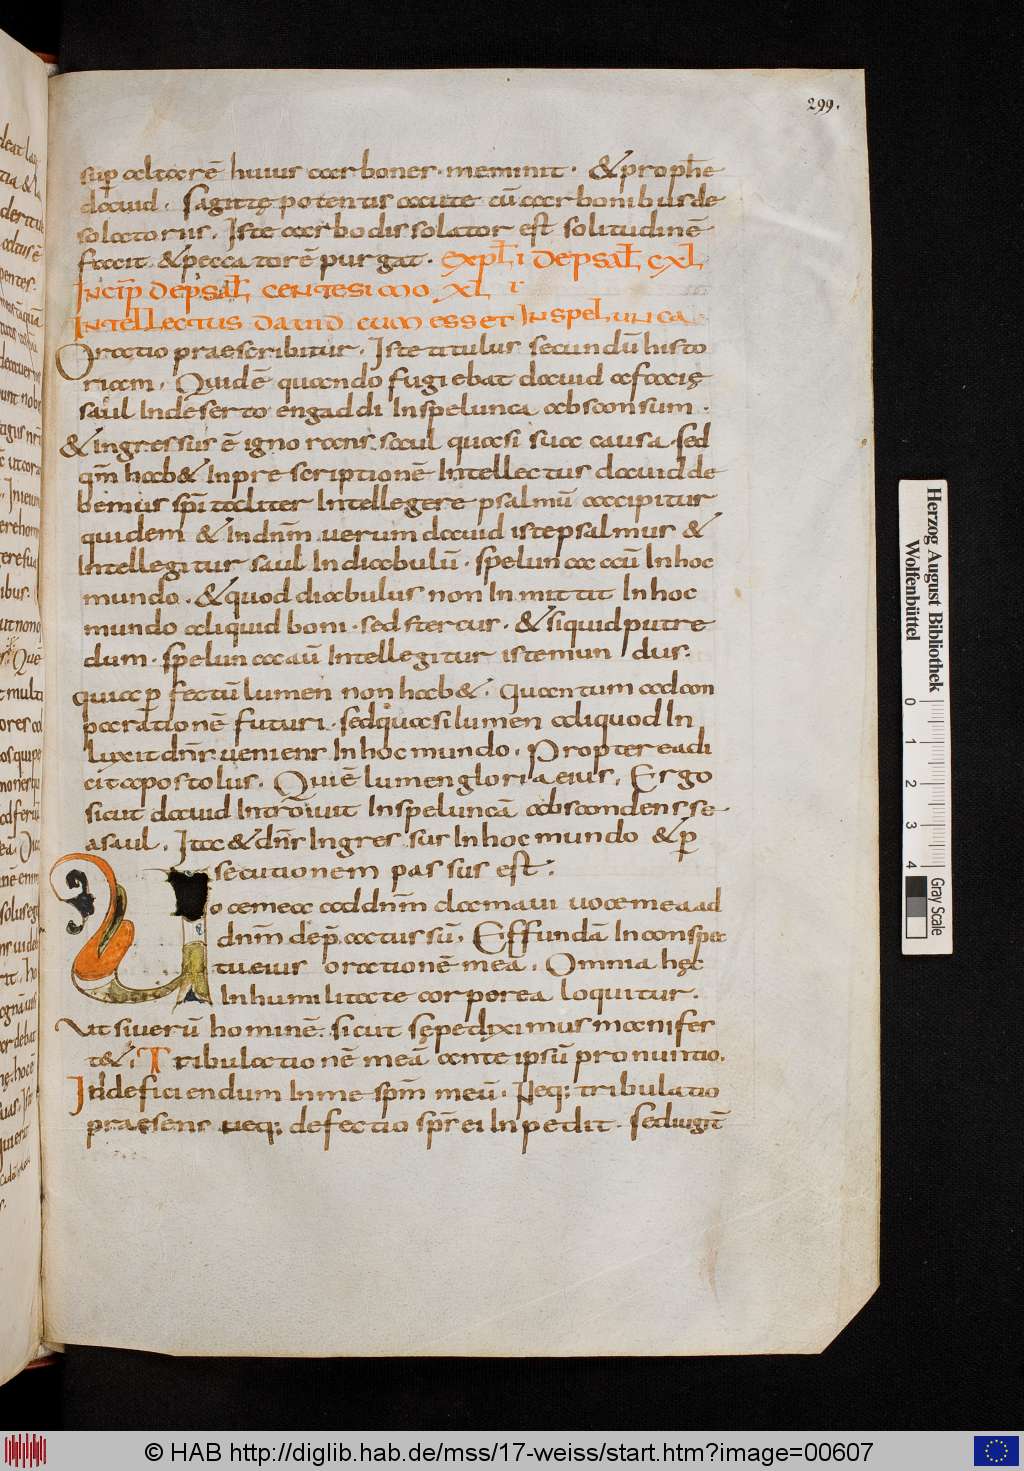 299.
sup altarē huius carbones. meminit. & proph̄e
dauid. sagittę potentis acute cū carbonibus de
solatoriis. Iste carbo dissolator est solitudinē
facit & peccatorē purgat. expl̄i de psal̄ cxl
Incip̄ de psal̄ centesimo xl i
Intellectus dauid cum esset In spelunca
Oratio praescribitur. Iste titulus secundū histo
riam. Quid ē quando fugiebat dauid afacię
saul In deserto engaddi In spelunca absconsum.
& ingressus ē ignorans saul quasi sua causa. sed
qm̄ hab& In prescriptionē Intellectus dauid de
bemus spī taliter Intellegere psalmū accipitur
quidem & In dnm̄ uerum dauid iste psalmus &
Intellegitur saul In diabulū. spelunca aū In hoc
mundo. & quod diabulus non In mittit In hoc
mundo aliquid boni. sed stercur. & siquid putre
dum. spelunca aū Intellegitur iste mun dus.
quia per fectū lumen non hab&. Quantum ad con
parationē futuri. sed quasi lumen aliquod In
luxit dn̄s ueniens In hoc mundo. Propterea di
cit apostolus. Qui ē lumen gloria eius. Ergo
sicut dauid Introiuit In speluncā abscondens se
a saul. Ita & dn̄s Ingressus In hoc mundo & p
secutionem passus est.
Uoce mea ad dnm̄ clamaui uoce mea ad
dnm̄ dep̄catus sū. Effundā In conspec
tu eius orationē meā. Omnia hęc
In humilitate corporea loquitur.
Ut si uerū hominē. sicut sępe diximus manifes
t&. Tribulationē meā ante ipsū pronuntio.
In deficiendum In me spm̄ meū. Neq; tribulatio
praesens neq; defectio spr̄ ei Inpedit. sed uigit̄
Herzog August Bibliothek
Wolfenbüttel
0 1 2 3 4
Gray Scale
© HAB http://diglib.hab.de/mss/17-weiss/start.htm?image=00607